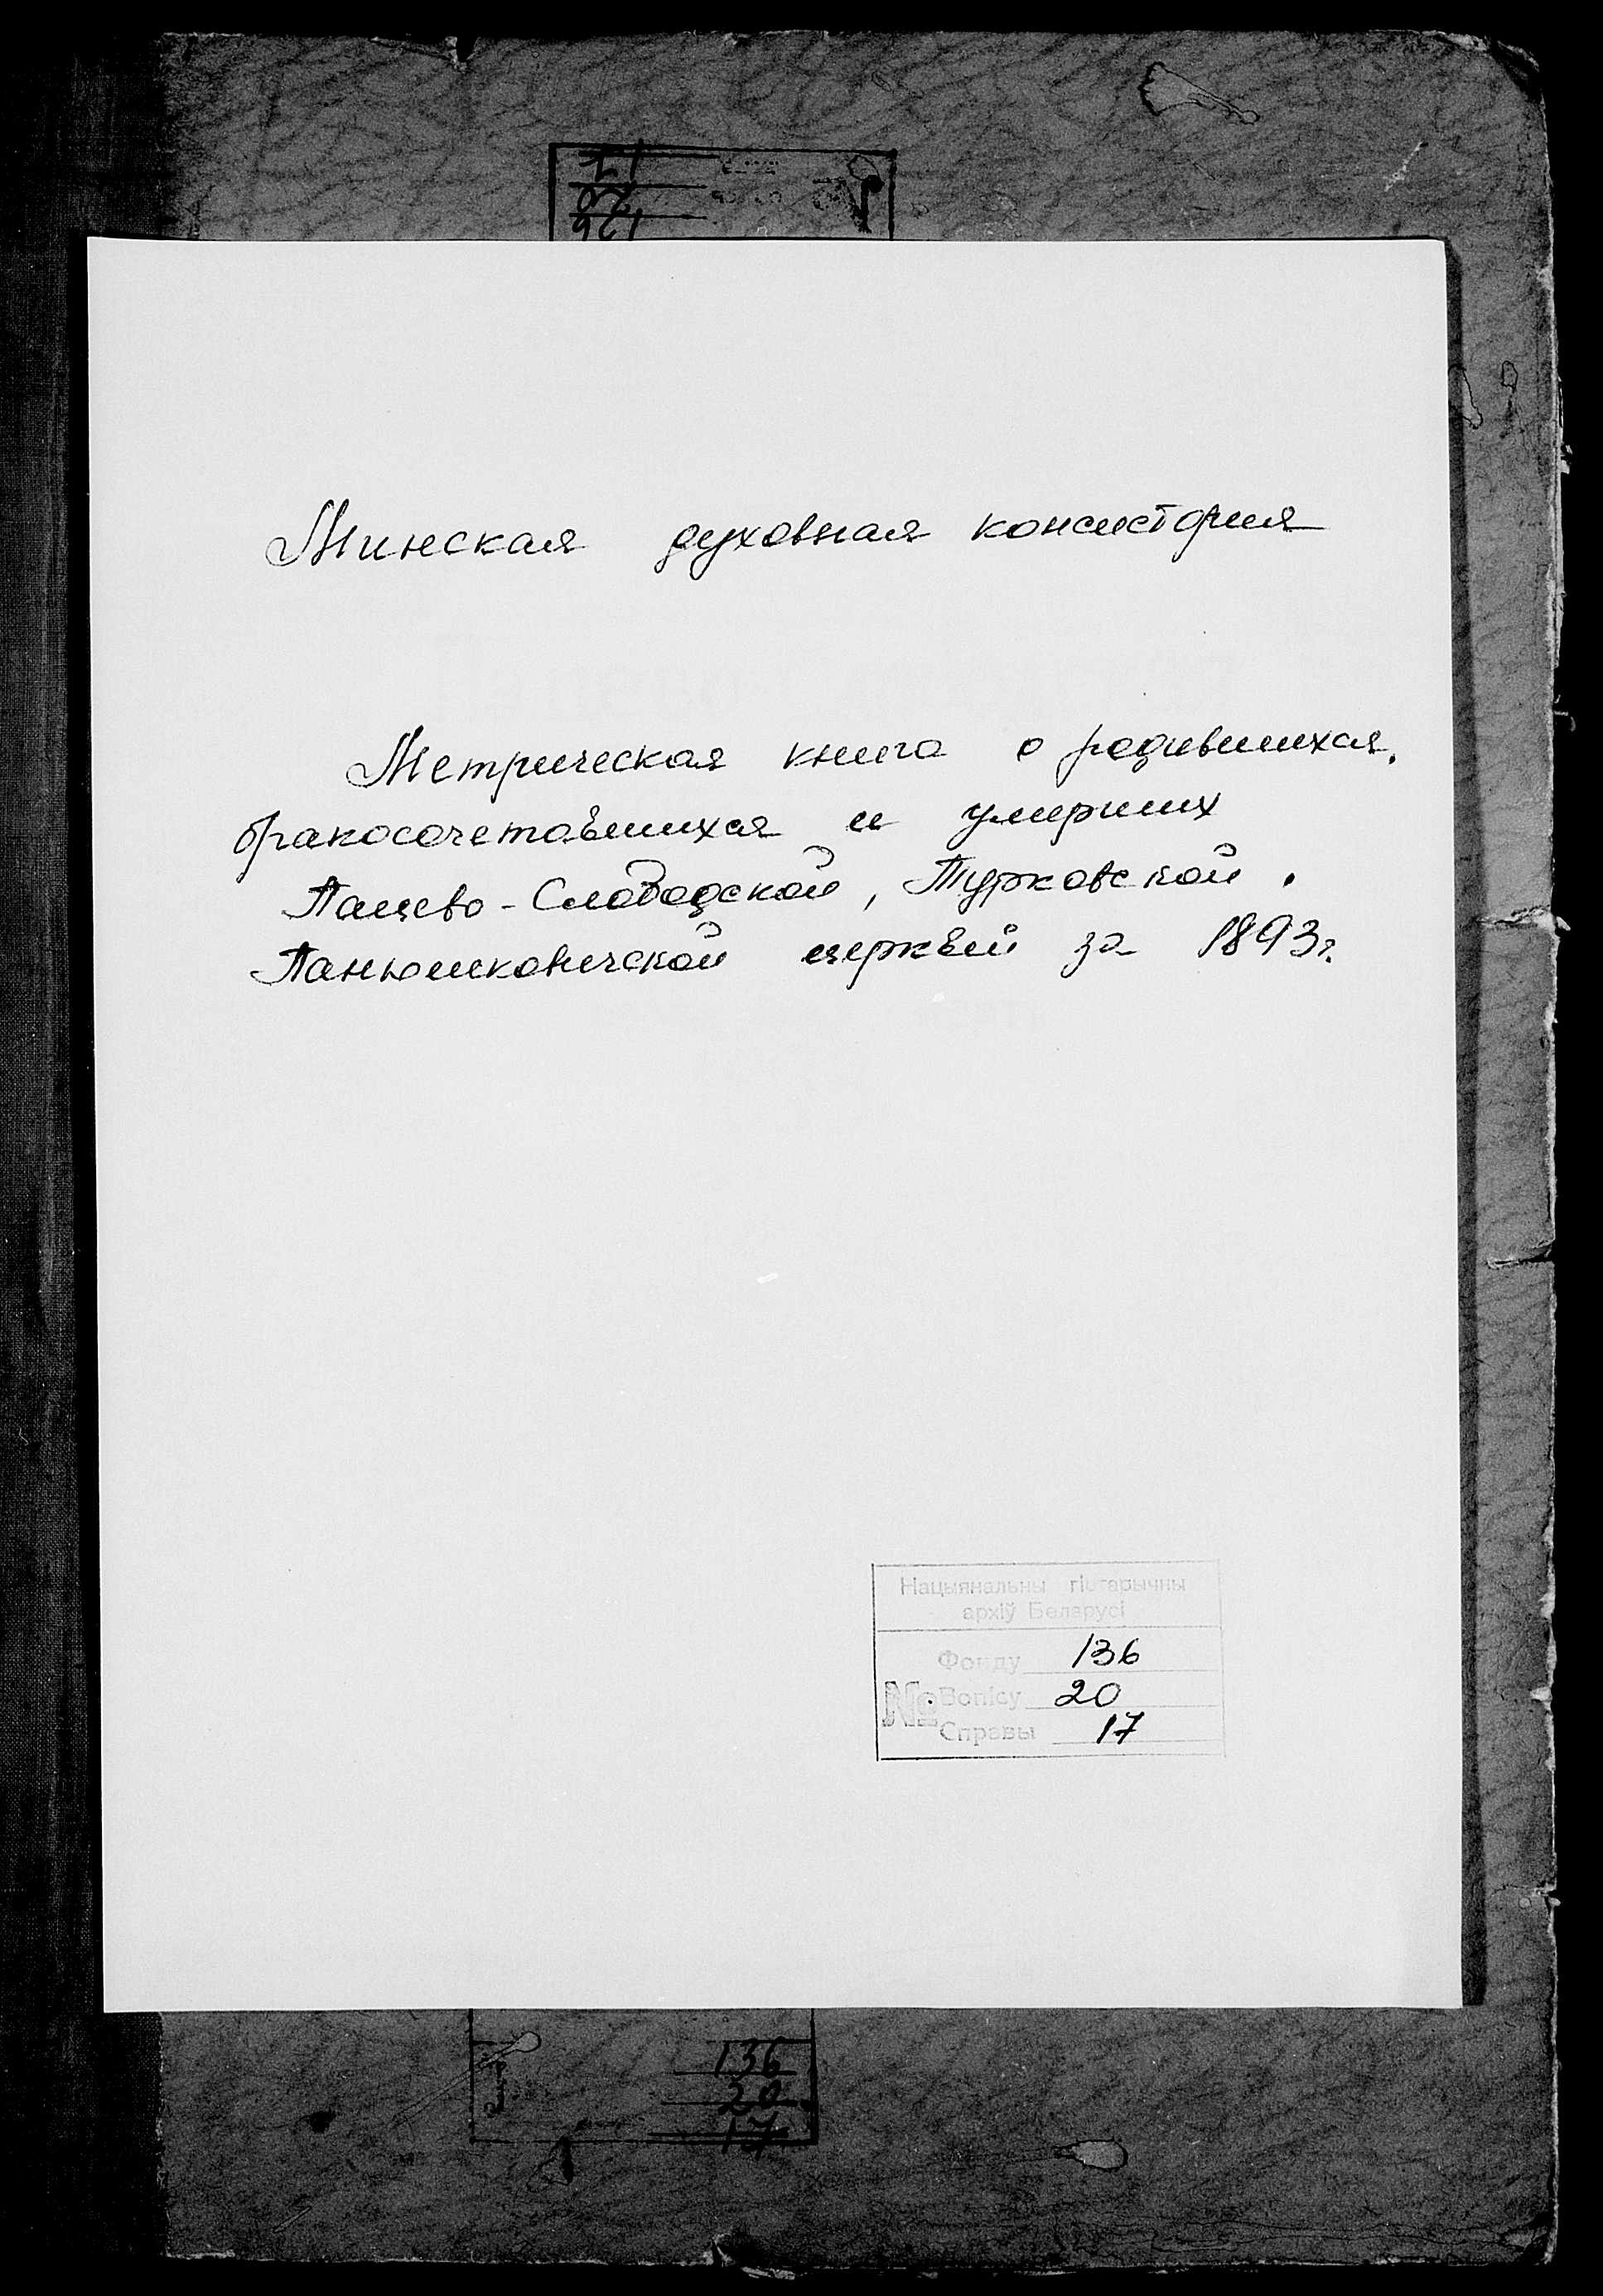 Минская духовная консистория
Метрическая книга о родившихся,
бракосочетавшихся и умерших
Пацево-Слободской, Турковской,
Панюшковичской церквей за 1893г.
Нацыянальны гістарычны
архіў Беларусі
Фонду 136
№ Вопісу 20
Справы 17
136
20
17